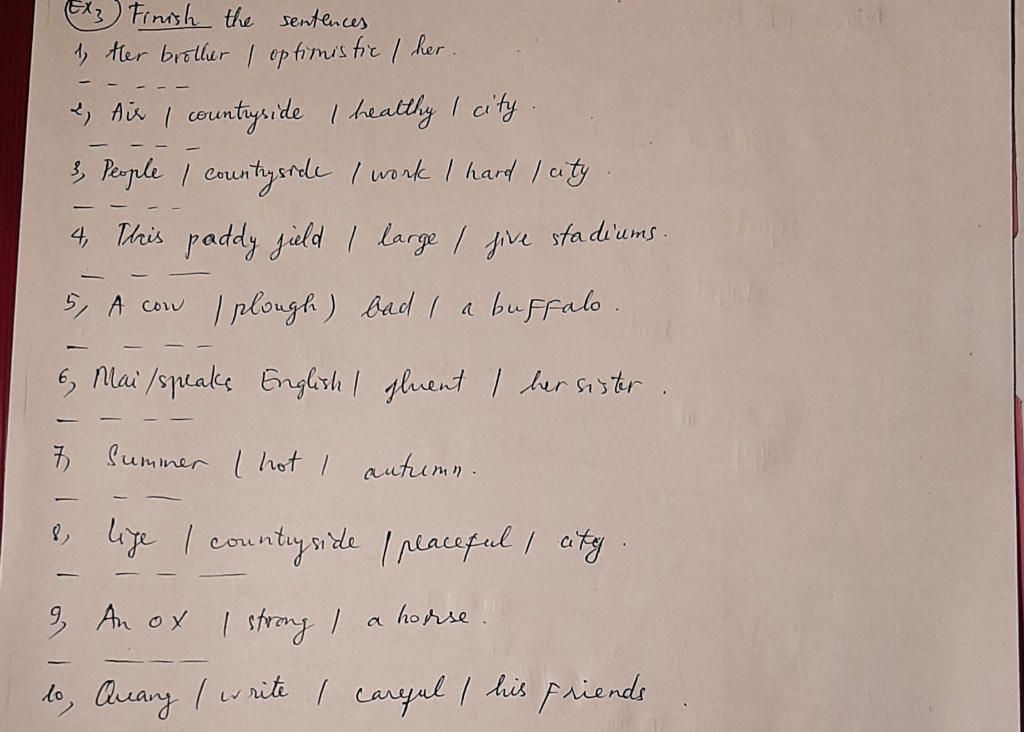 Ex3) Finish the sentences
1, Her brother / optimistic / her.
2, Air / countryside / healthy / city.
3, People / countryside / work / hard / city.
4, This paddy field / large / five stadiums.
5, A cow / plough) bad / a buffalo.
6, Mai/speaks English / fluent / her sister.
7, Summer / hot / autumn.
8, life / countryside / peaceful / city.
9, An ox / strong / a horse.
10, Quang / write / careful / his friends.